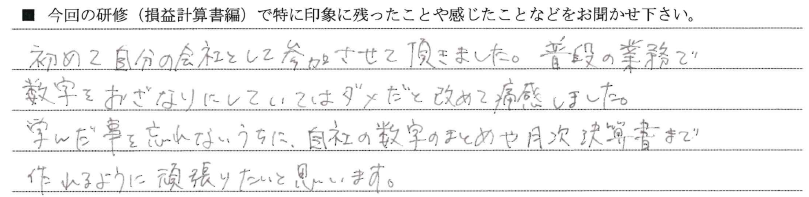 ■ 今回の研修（損益計算書編）で特に印象に残ったことや感じたことなどをお聞かせ下さい。
初めて自分の会社として参加させて頂きました。普段の業務で
数字をおざなりにしていてはダメだと改めて痛感しました。
学んだ事を忘れないうちに、自社の数字のまとめや月次決算書まで
作れるように頑張りたいと思います。